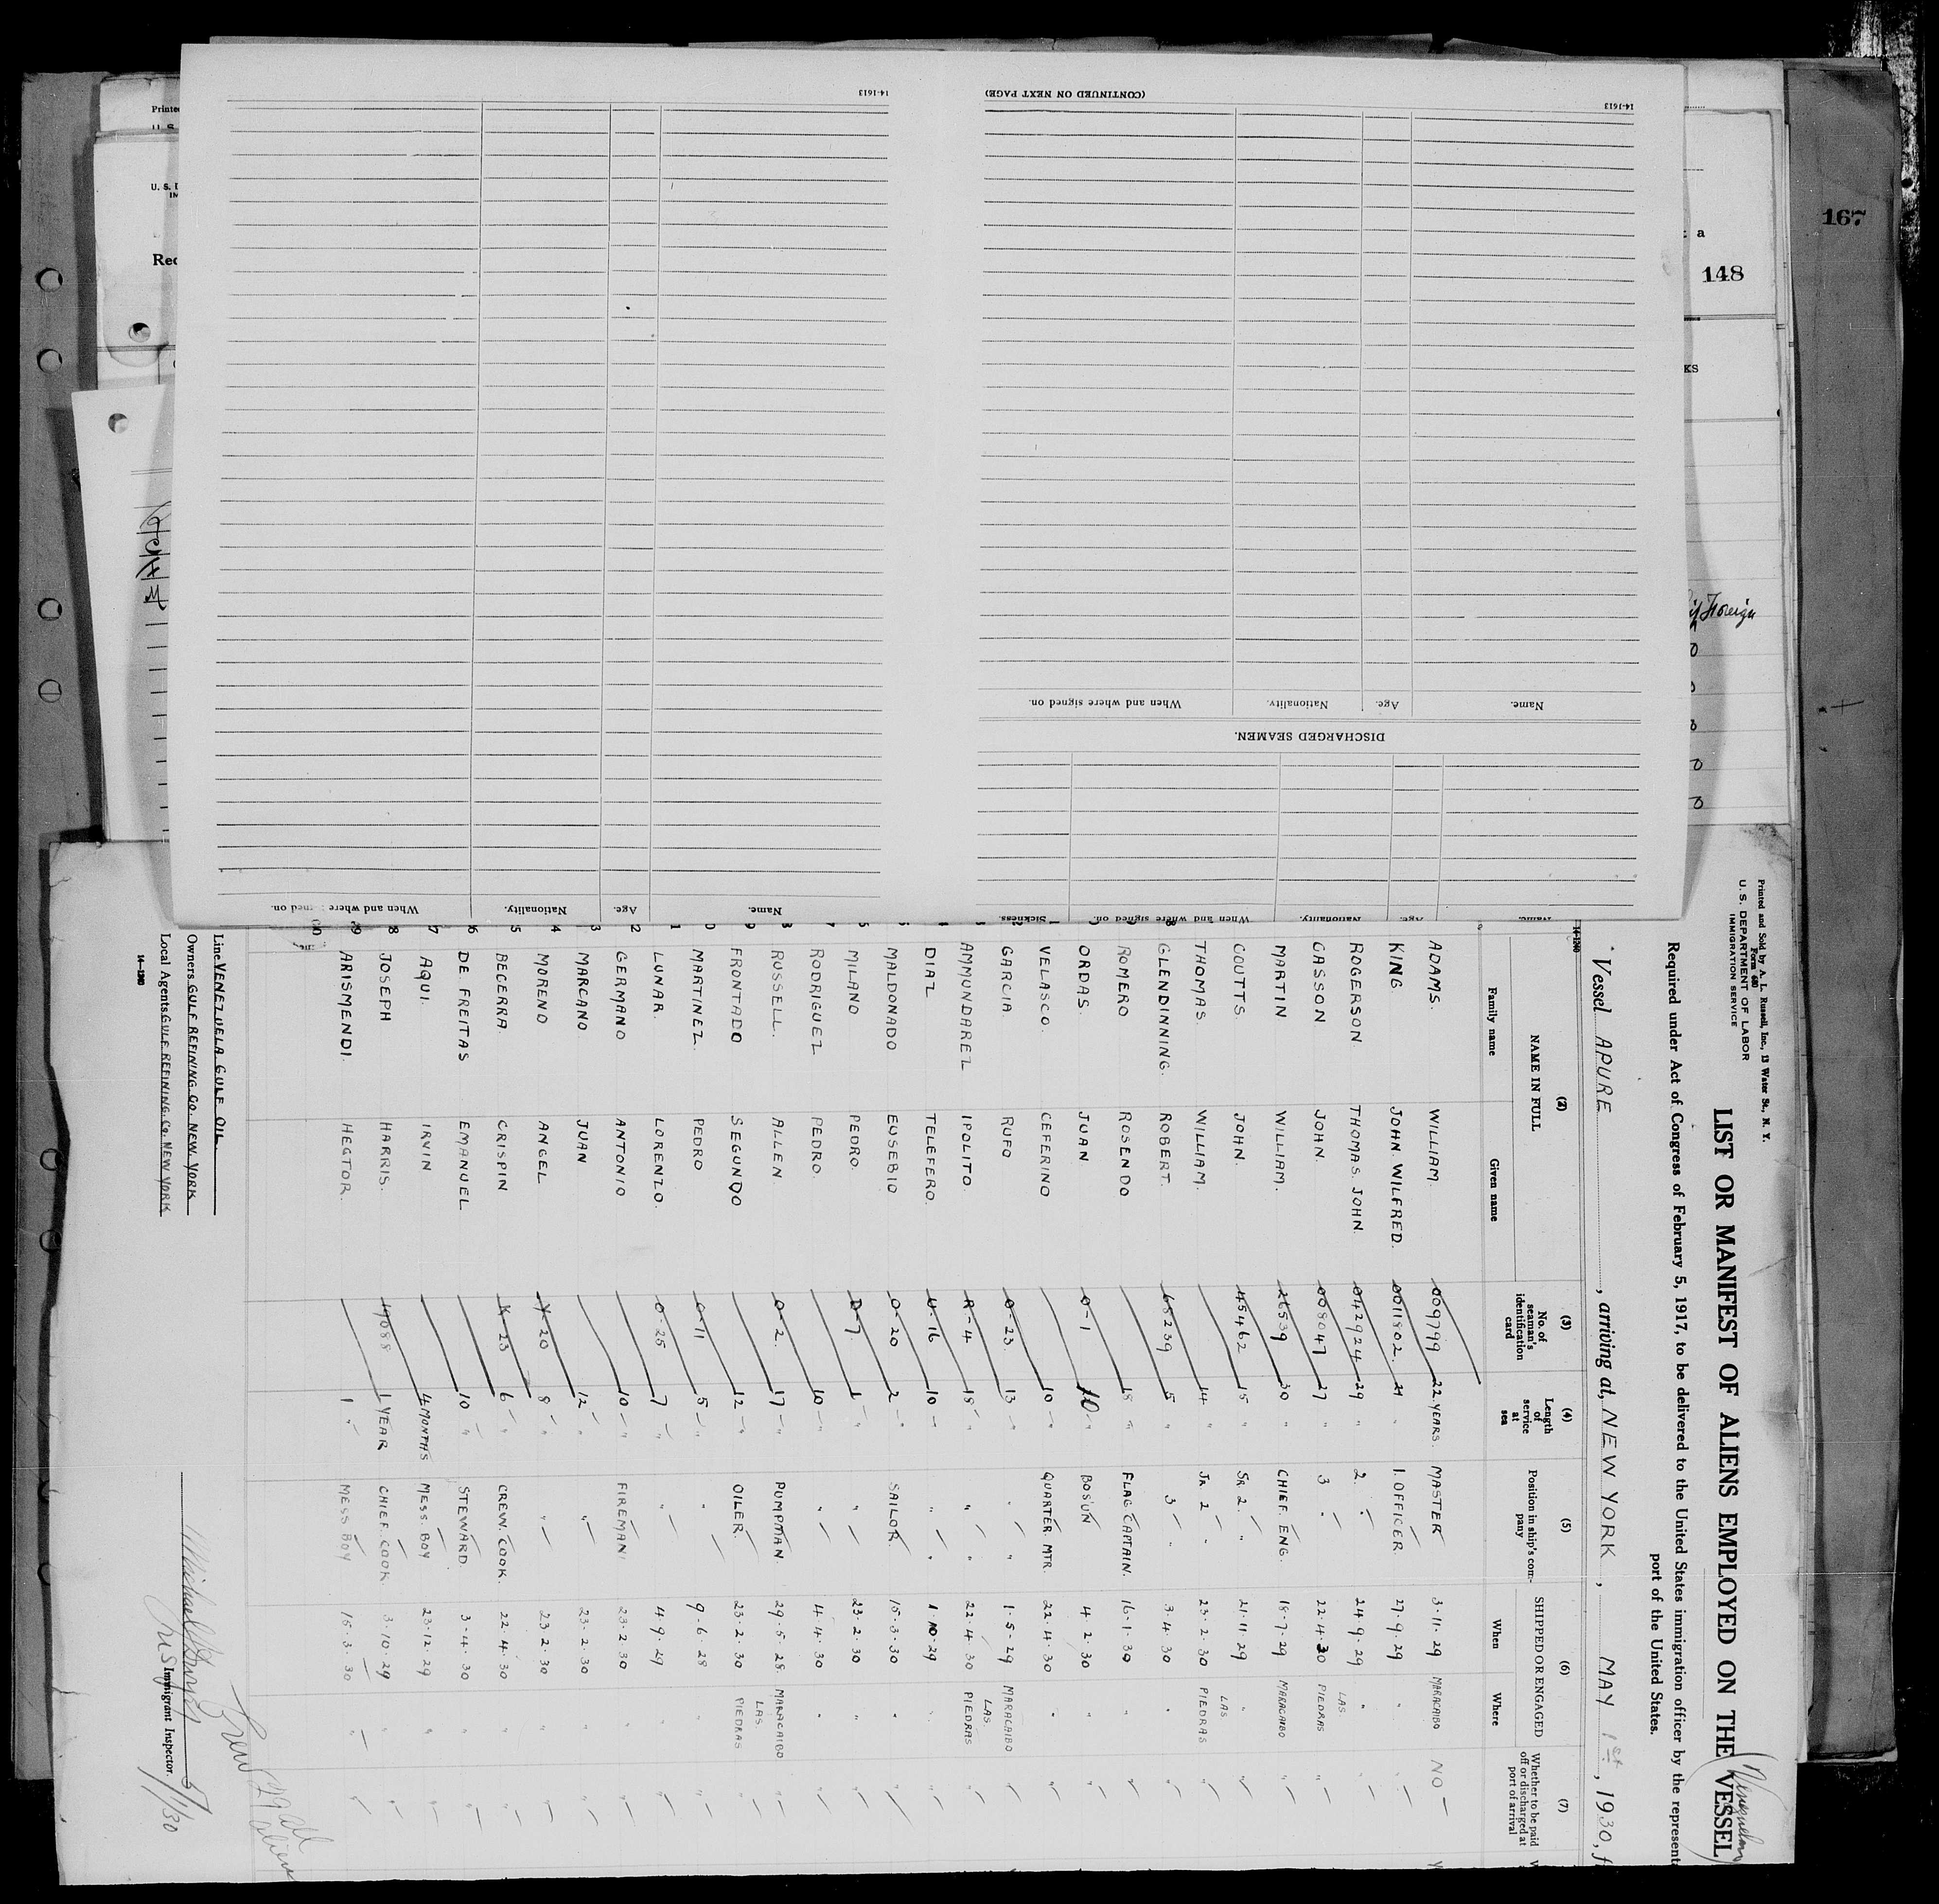 167
148
a
KS
Foreign
Printed
U. S.
U. S. D
IM
Rec
(CONTINUED ON NEXT PAGE)
14-1613
14-1613
Name. Age. Nationality. When and where signed on.
DISCHARGED SEAMEN.
Name. Age. Nationality. When and where signed on. Sickness.
Name. Age. Nationality. When and where signed on.
Printed and Sold by A. L. Russell, Inc., 13 Water St., N. Y.
Form 680
U. S. DEPARTMENT OF LABOR
IMMIGRATION SERVICE
LIST OR MANIFEST OF ALIENS EMPLOYED ON THE VESSEL
Required under Act of Congress of February 5, 1917, to be delivered to the United States immigration officer by the represent
port of the United States.
Vessel APURE, arriving at NEW YORK, MAY 1st, 1930, f
14-1240
(2) (3) (4) (5) (6) (7)
NAME IN FULL
Family name Given name
No. of seaman's identification card
Length of service at sea
Position in ship's company
SHIPPED OR ENGAGED
When Where
Whether to be paid off or discharged at port of arrival
ADAMS. WILLIAM. 009799 22 YEARS. MASTER 3·11·29 MARACAIBO NO
KING JOHN WILFRED. 0011802. 21 " 1. OFFICER 27·9·29 " "
ROGERSON THOMAS. JOHN. 042924 29 " 2. " 24·9·29 " "
CASSON JOHN. 008047 27 " 3 " 22·4·30 LAS PIEDRAS "
MARTIN WILLIAM. 26539 30 " CHIEF. ENG. 18·7·29 MARACAIBO "
COUTTS. JOHN. 45462 15 " SR 2. " 21·11·29 " "
THOMAS. WILLIAM. 14 " JR 2 " 23·2·30 LAS PIEDRAS "
GLENDINNING. ROBERT. 68239 5 " 3 " 3·4·30 " "
ROMERO ROSENDO 18 " FLAG CAPTAIN. 16·1·30 " "
ORDAS. JUAN 0-1 10 " BOS'UN 4·2·30 " "
VELASCO. CEFERINO 10 " QUARTER. MTR. 22·4·30 " "
GARCIA. RUFO 0-23. 13 " " " 1·5·29 MARACAIBO "
AMMUNDAREZ IPOLITO. R-4 18 " " " 22·4·30 LAS PIEDRAS "
DIAZ TELEFERO. U-16 10 " " " 1·10·29 " "
MALDONADO EUSEBIO 0-20 2 " SAILOR. 15·3·30 " "
MILANO PEDRO. D-7. 1 " " 23·2·30 " "
RODRIGUEZ PEDRO. 10 " " 4·4·30 " "
RUSSELL. ALLEN 0-2. 17 " PUMPMAN. 29·5·28. MARACAIBO "
FRONTADO SEGUNDO 12 " OILER. 23·2·30 LAS PIEDRAS "
MARTINEZ. PEDRO 0-11 5 " " 9·6·28 " "
LUNAR. LORENZO. 0-25 7 " " 4·9·29 " "
GERMANO ANTONIO 10 " FIREMAN 23·2·30 " "
MARCANO JUAN 12 " " 23·2·30 " "
MORENO ANGEL Y-20 8 " " 23·2·30 " "
BECERRA. CRISPIN K-23 6 " CREW. COOK. 22·4·30 " "
DE FREITAS EMANUEL 10 " STEWARD. 3·4·30 " "
AQUI. IRVIN 4 MONTHS MESS. BOY 23·12·29 " "
JOSEPH HARRIS. 19088 1 YEAR CHIEF. COOK. 3·10·29 " "
ARISMENDI. HECTOR. 1 " MESS BOY 15·3·30 " "
Crew 29 all aliens
Line VENEZUELA GULF OIL
Owners GULF REFINING. CO. NEW. YORK
Local Agents GULF REFINING. CO. NEW YORK
14-1240
Immigrant Inspector.
5/1/30